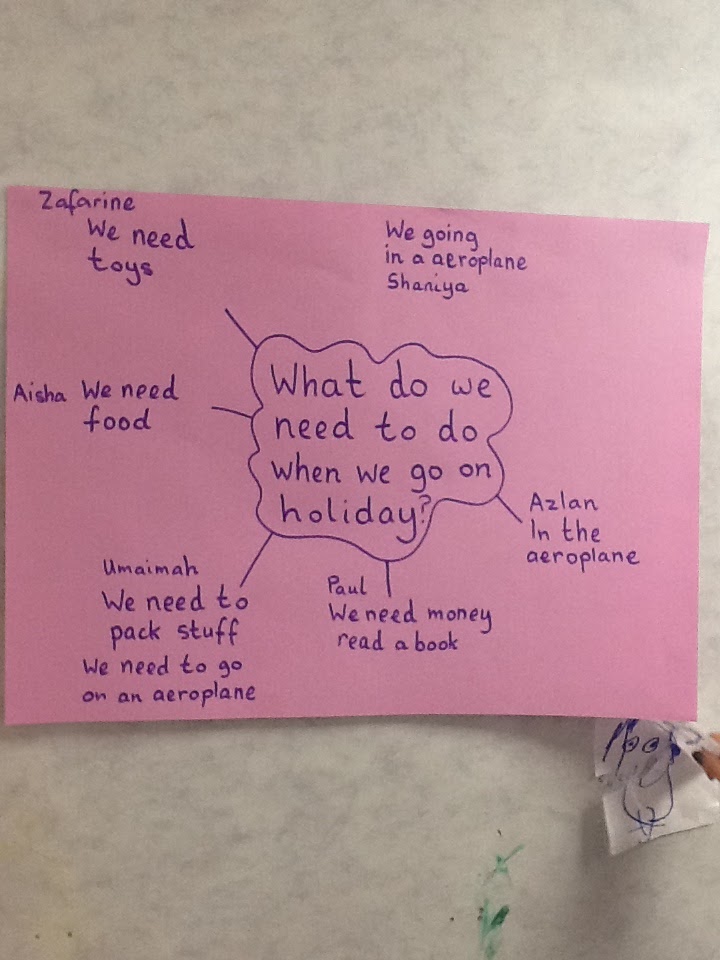 Zafarine
We need
toys
We going
in a aeroplane
Shaniya
What do we
need to do
when we go on
holiday?
Aisha We need
food
Azlan
In the
aeroplane
Umaimah
We need to
pack stuff
We need to go
on an aeroplane
Paul
We need money
read a book